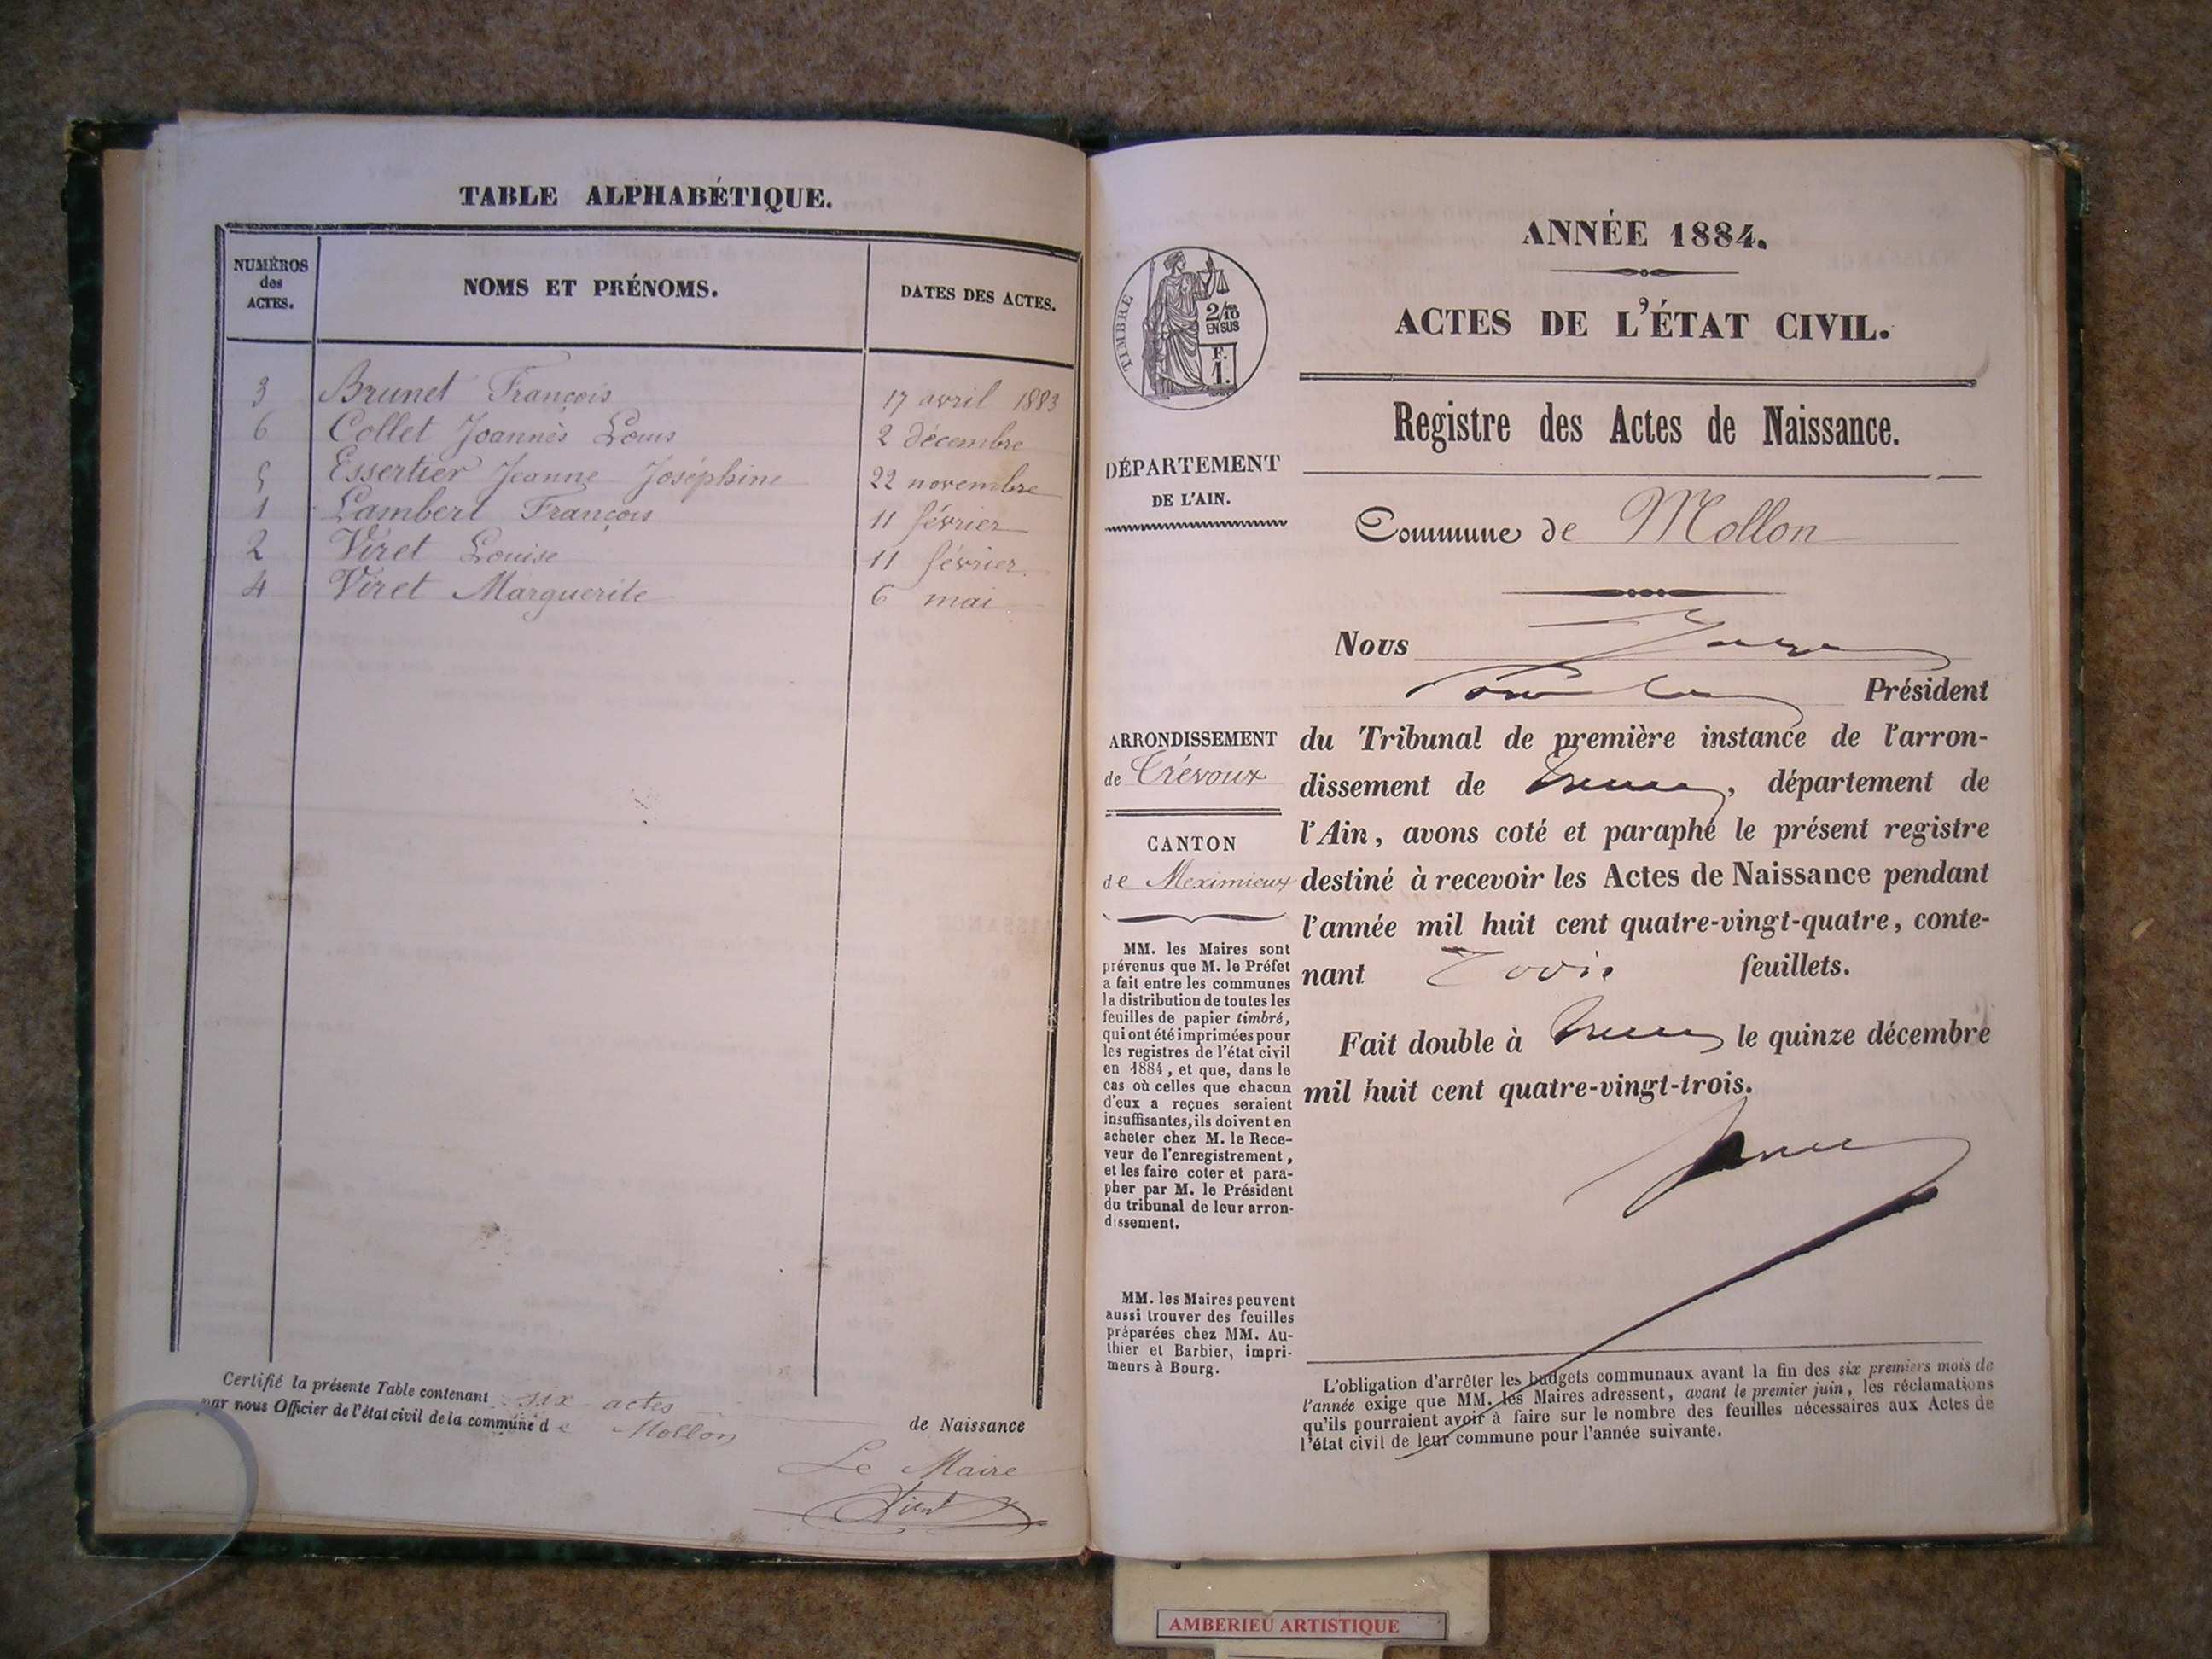 TABLE ALPHABÉTIQUE.
NUMÉROS
des
ACTES.
NOMS ET PRÉNOMS.
DATES DES ACTES.
3 Brunet François 17 avril 1883
6 Collet Joannès Louis 2 décembre
5 Essertier Jeanne Joséphine 22 novembre
1 Lambert François 11 février
2 Viret Louise 11 février
4 Viret Marguerite 6 mai
Certifié la présente Table contenant six actes
de Naissance
par nous Officier de l'état civil de la commune de Mollon
Le Maire
ANNÉE 1884.
ACTES DE L'ÉTAT CIVIL.
Registre des Actes de Naissance.
Commune de Mollon
Nous
Président
du Tribunal de première instance de l'arron-
dissement de , département de
l'Ain, avons coté et paraphé le présent registre
destiné à recevoir les Actes de Naissance pendant
l'année mil huit cent quatre-vingt-quatre, conte-
nant Trois feuillets.
Fait double à le quinze décembre
mil huit cent quatre-vingt-trois.
L'obligation d'arrêter les budgets communaux avant la fin des six premiers mois de
l'année exige que MM. les Maires adressent, avant le premier juin, les réclamations
qu'ils pourraient avoir à faire sur le nombre des feuilles nécessaires aux Actes de
l'état civil de leur commune pour l'année suivante.
TIMBRE
2/10
EN SUS
F.
1.
DÉPARTEMENT
DE L'AIN.
ARRONDISSEMENT
de Trévoux
CANTON
de Meximieux
MM. les Maires sont
prévenus que M. le Préfet
a fait entre les communes
la distribution de toutes les
feuilles de papier timbré,
qui ont été imprimées pour
les registres de l'état civil
en 1884, et que, dans le
cas où celles que chacun
d'eux a reçues seraient
insuffisantes, ils doivent en
acheter chez M. le Rece-
veur de l'enregistrement,
et les faire coter et para-
pher par M. le Président
du tribunal de leur arron-
dissement.
MM. les Maires peuvent
aussi trouver des feuilles
préparées chez MM. Au-
thier et Barbier, impri-
meurs à Bourg.
AMBERIEU ARTISTIQUE